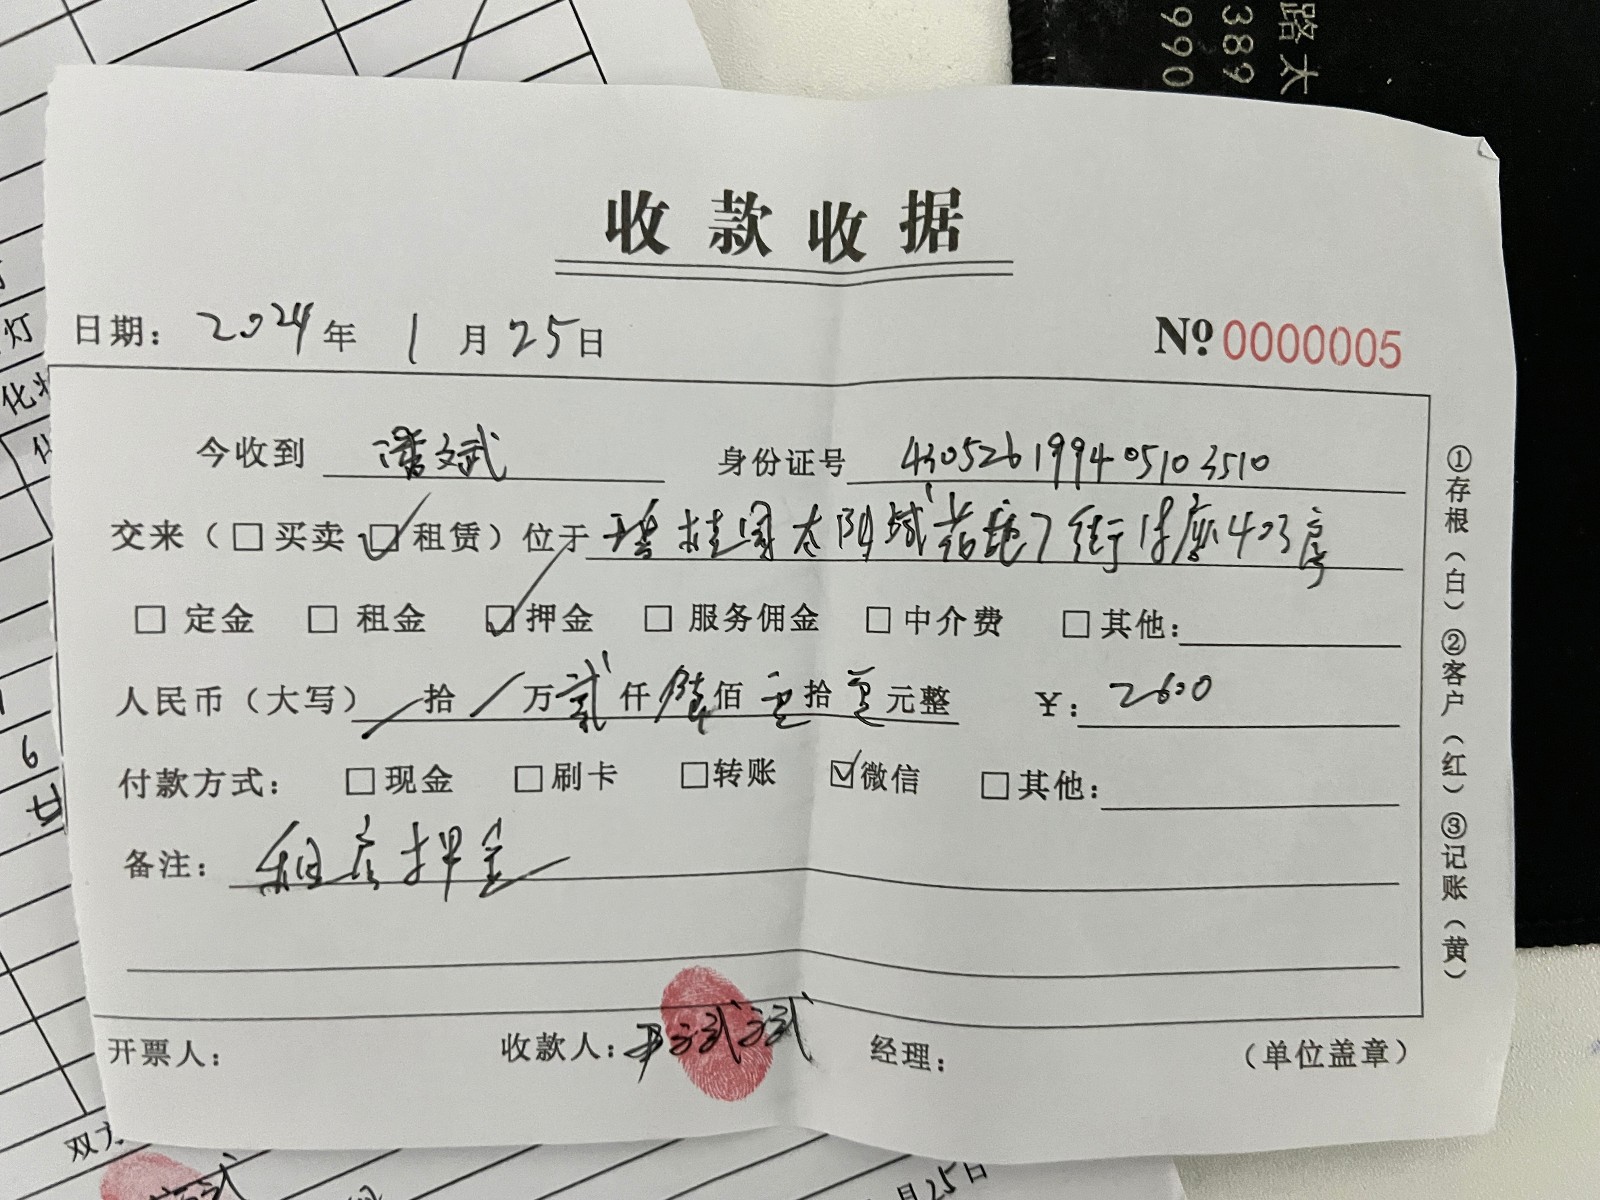 路大
389
990
灯
化
6
收款收据
日期：2024年1月25日 Nº 0000005
今收到 潘文武 身份证号 430526199405103510
交来（☐买卖 ☑租赁）位于 碧桂园太阳城 7街 座403房
☐定金 ☐租金 ☑押金 ☐服务佣金 ☐中介费 ☐其他：
人民币（大写）/拾/万贰仟陆佰零拾零元整 ¥：2600
付款方式：☐现金 ☐刷卡 ☐转账 ☑微信 ☐其他：
备注：租房押金
开票人： 收款人： 经理： （单位盖章）
①存根（白）②客户（红）③记账（黄）
双方
月25日